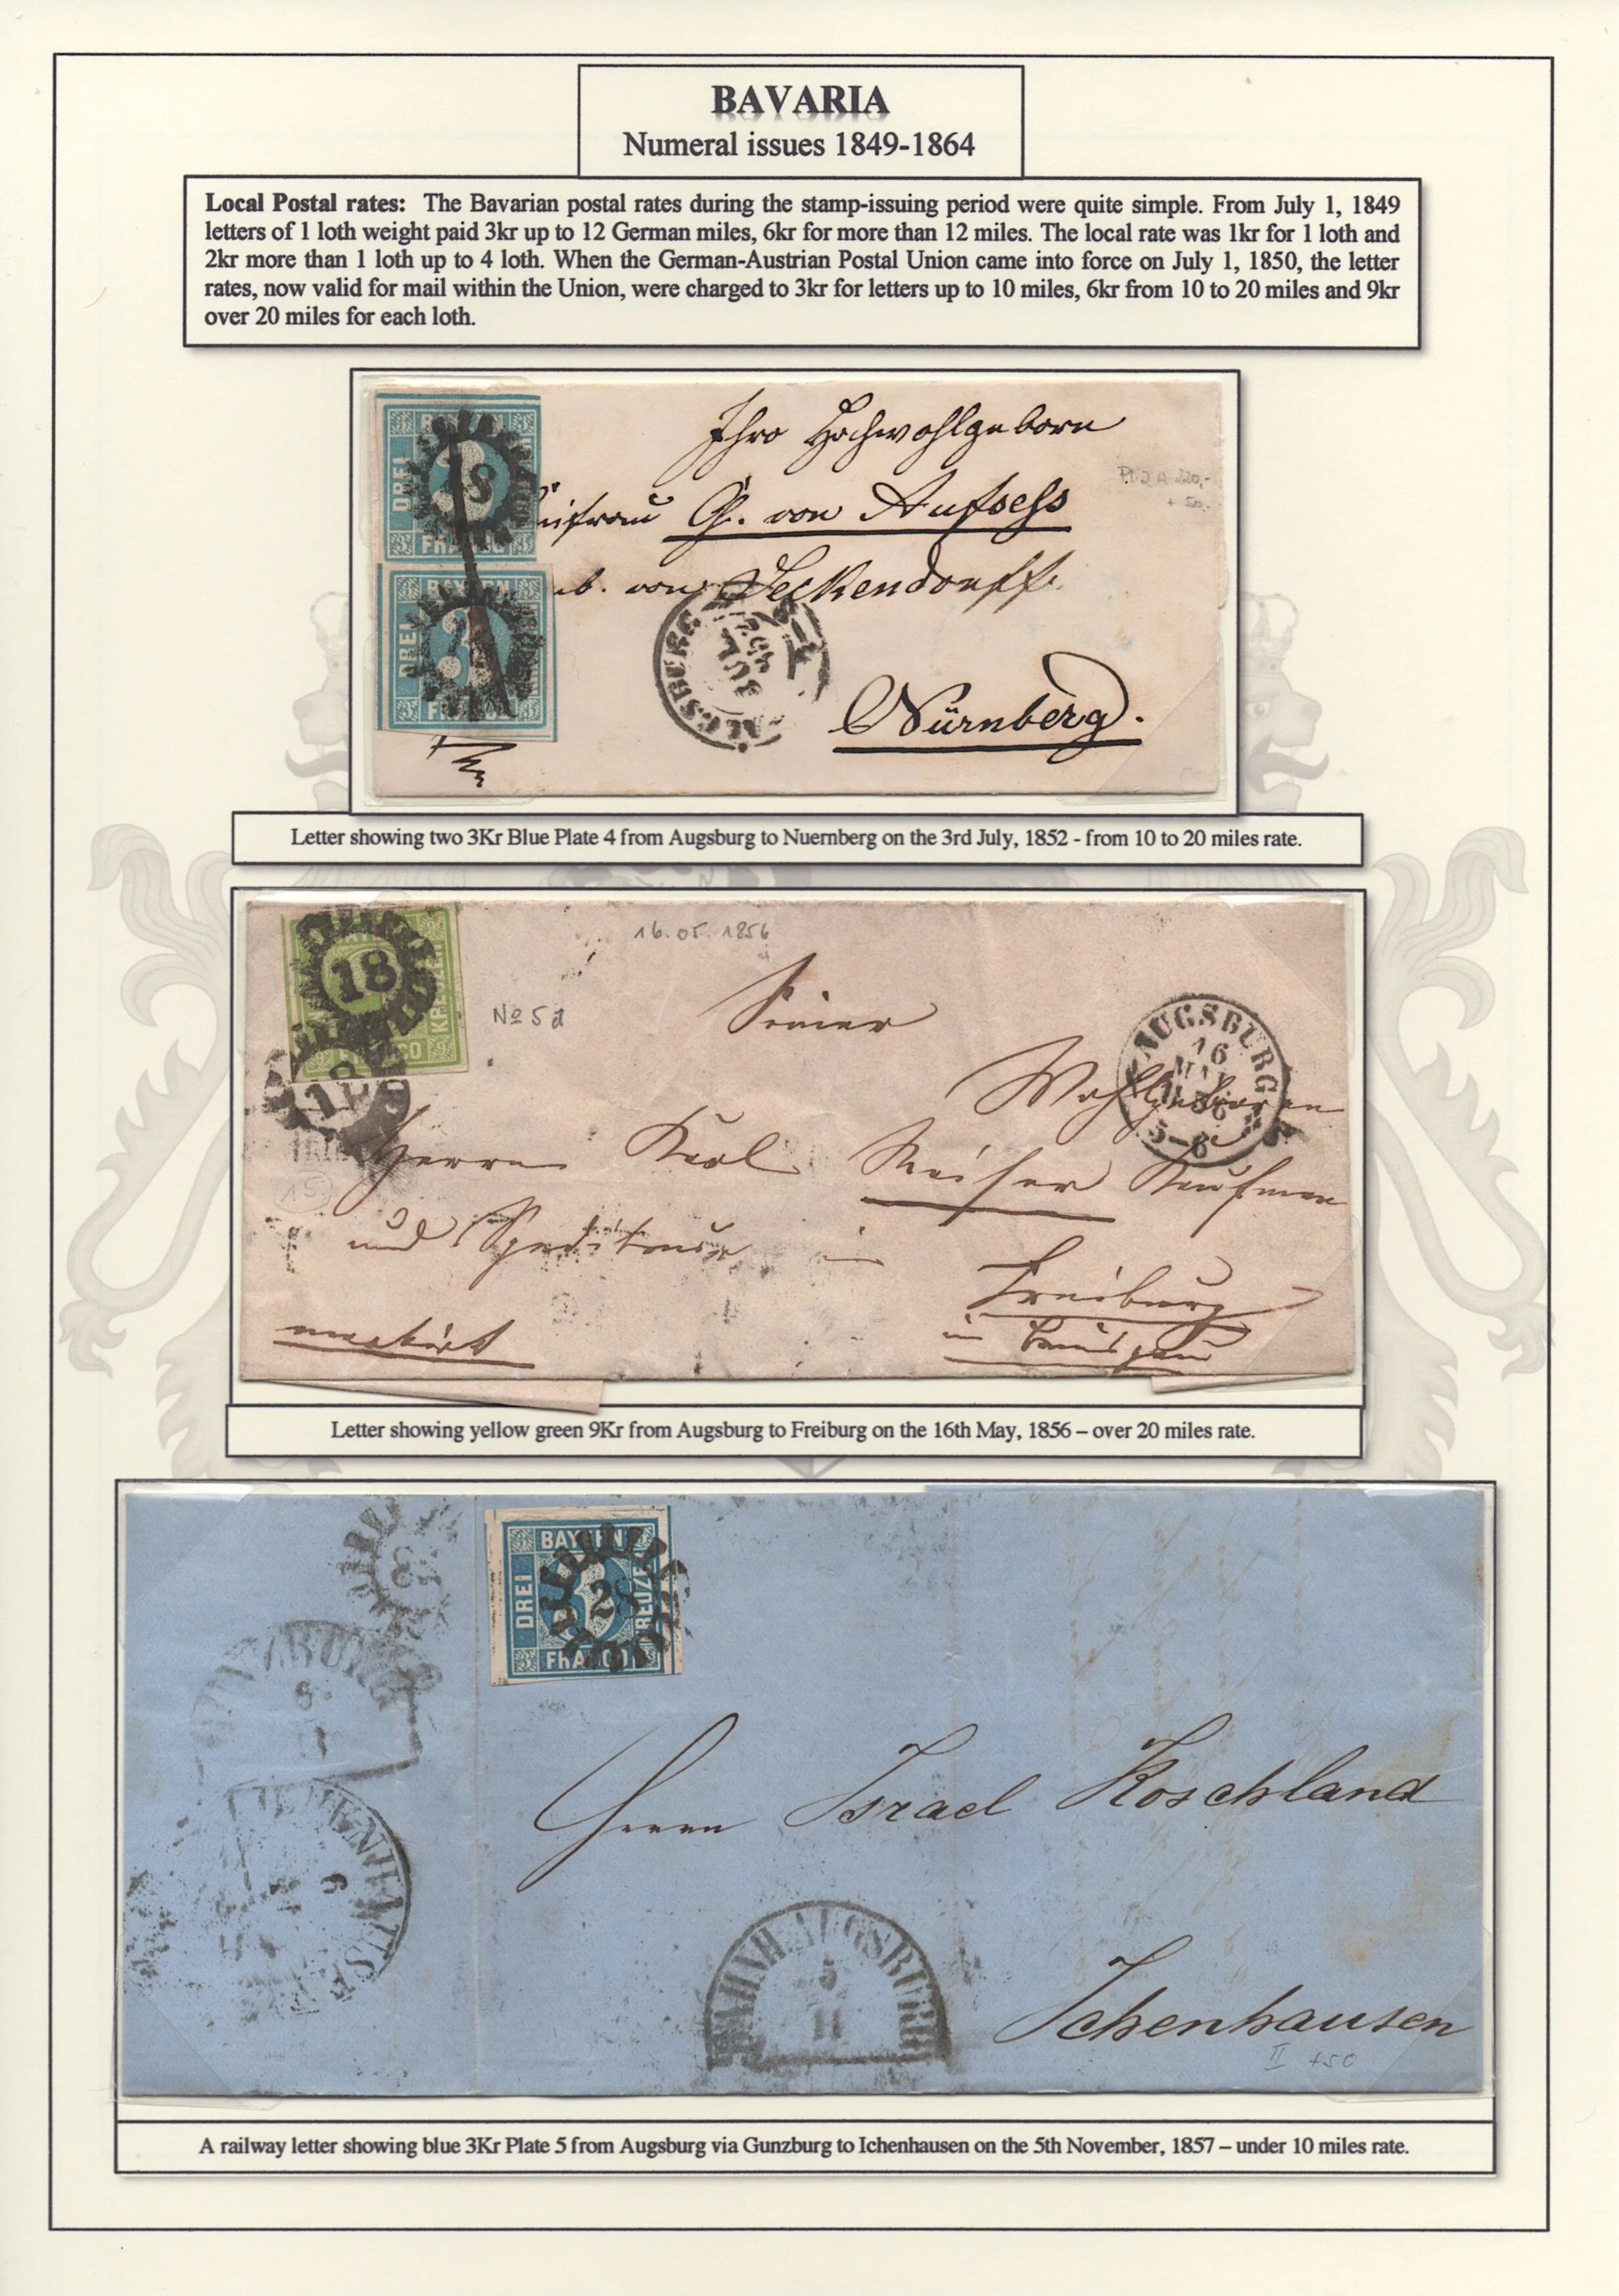 BAVARIA
Numeral issues 1849-1864
Local Postal rates: The Bavarian postal rates during the stamp-issuing period were quite simple. From July 1, 1849
letters of 1 loth weight paid 3kr up to 12 German miles, 6kr for more than 12 miles. The local rate was 1kr for 1 loth and
2kr more than 1 loth up to 4 loth. When the German-Austrian Postal Union came into force on July 1, 1850, the letter
rates, now valid for mail within the Union, were charged to 3kr for letters up to 10 miles, 6kr from 10 to 20 miles and 9kr
over 20 miles for each loth.
DREI
18
FRANCO
BAYERN
DREI
3
Ihro Hochwohlgeborn
G. von Aufsess
von Seckendorff.
AUGSBURG
JUL
Nürnberg.
Letter showing two 3Kr Blue Plate 4 from Augsburg to Nuernberg on the 3rd July, 1852 - from 10 to 20 miles rate.
18
KREUZER
FRANCO
18
16.05.1856
No 5d
Seiner
AUGSBURG
16
MAI
1856
5-6
Wohlgeboren
Herrn Karl Kaufman
und Spediteur in
Freiburg
im Breisgau
15
Letter showing yellow green 9Kr from Augsburg to Freiburg on the 16th May, 1856 – over 20 miles rate.
BAYERN
DREI
28
KREUZER
FRANCO
Herrn Israel Koschland
BAHNH.AUGSBURG
5
11
Ichenhausen
II +50
A railway letter showing blue 3Kr Plate 5 from Augsburg via Gunzburg to Ichenhausen on the 5th November, 1857 – under 10 miles rate.